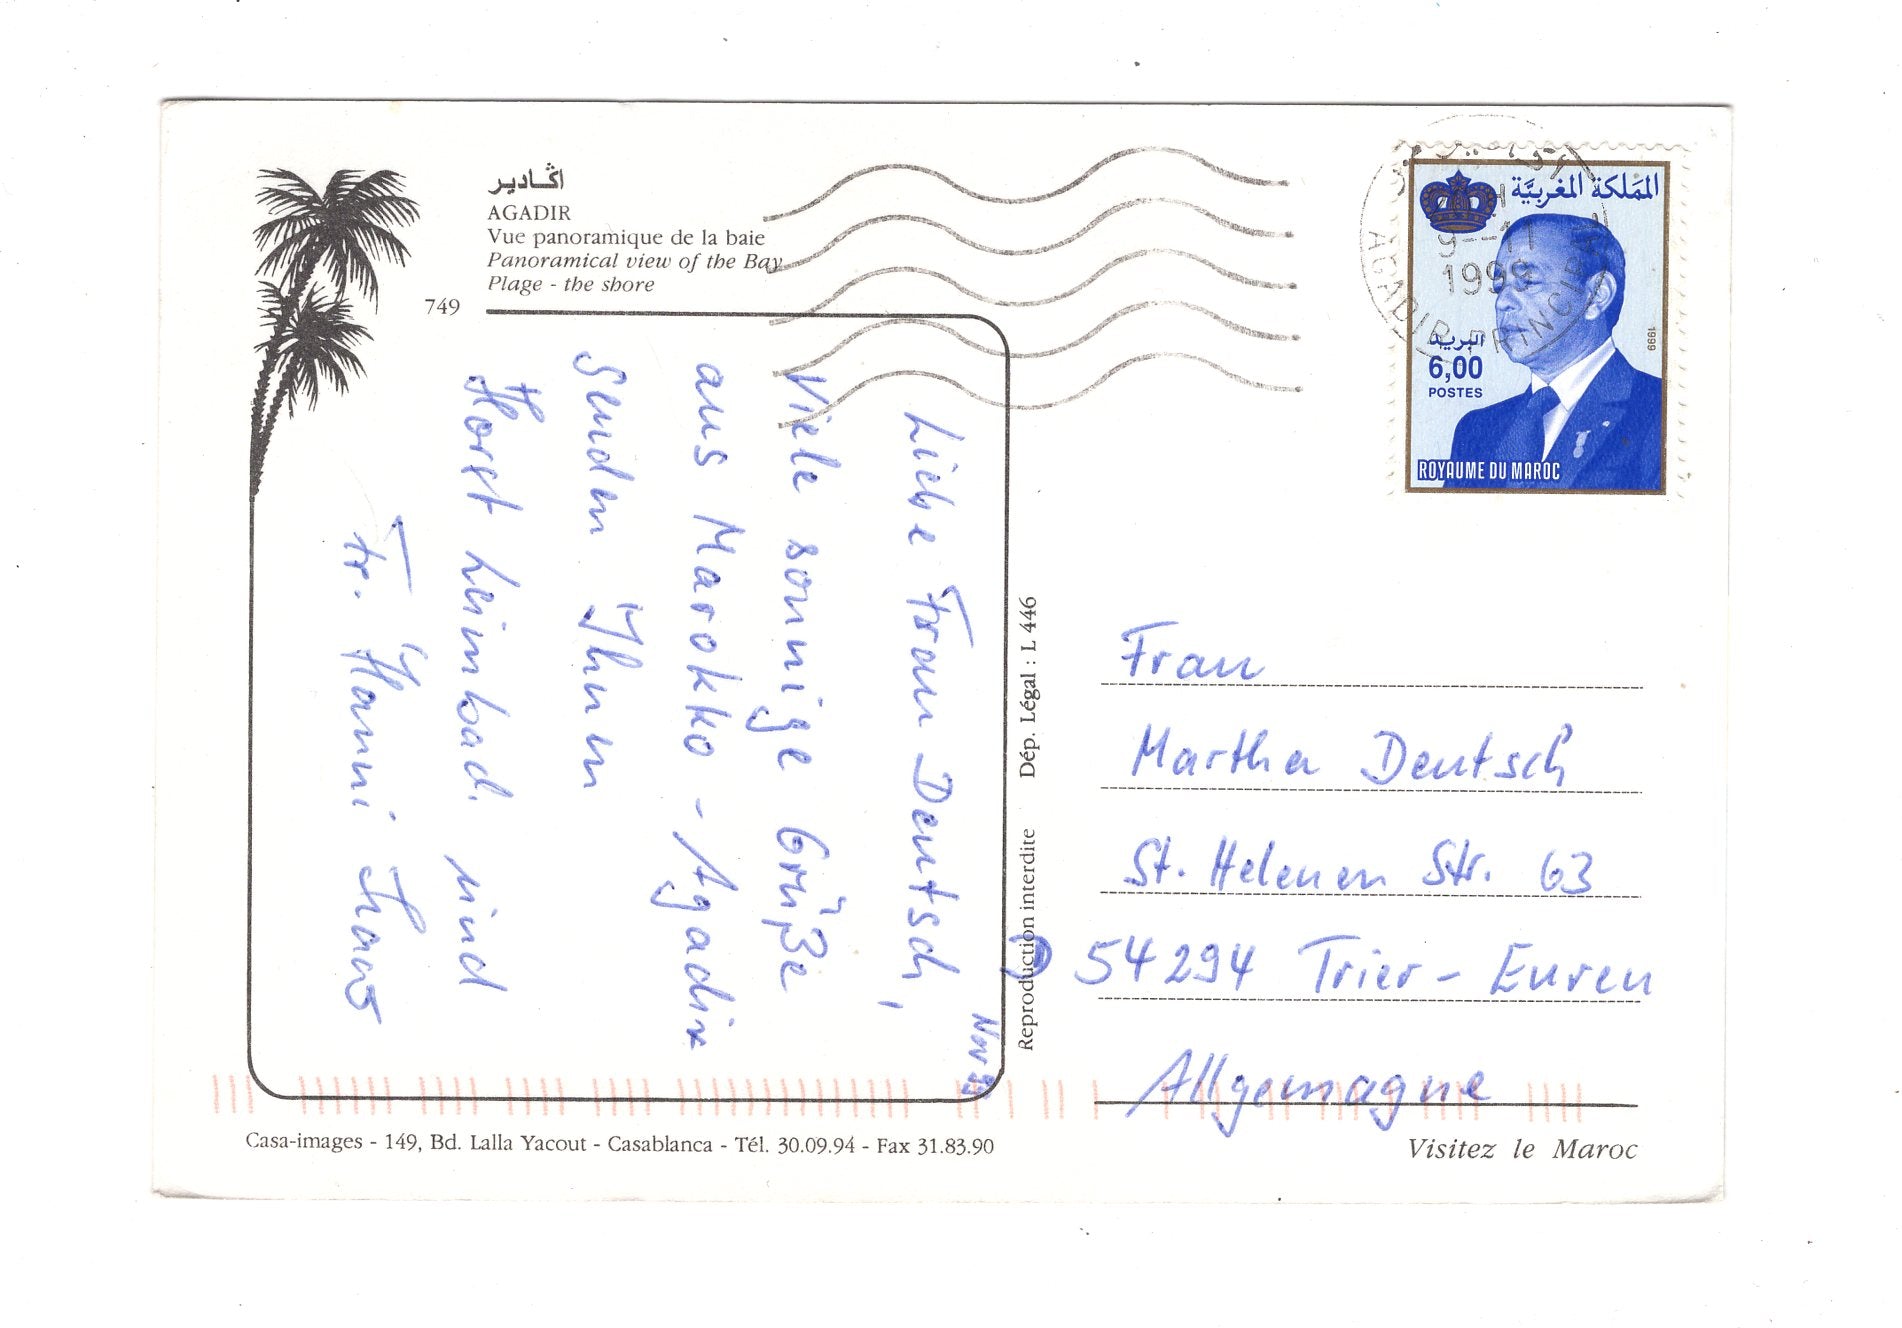 اݣادير
AGADIR
Vue panoramique de la baie
Panoramical view of the Bay
Plage - the shore
749
Liebe Frau Deutsch,
Viele sonnige Grüße
aus Marokko - Agadir
Senden Ihnen
Horst Leimbad. und
Fr. Hanni
Nov 99
Reproduction interdite Dép. Légal : L 446
المملكة المغربية
9-11
1999
AGADIR-PRINCIPAL
البريد
6,00
POSTES
1999
ROYAUME DU MAROC
Frau
Martha Deutsch
St. Helenen Str. 63
D 54294 Trier - Euren
Allgemagne
Casa-images - 149, Bd. Lalla Yacout - Casablanca - Tél. 30.09.94 - Fax 31.83.90
Visitez le Maroc